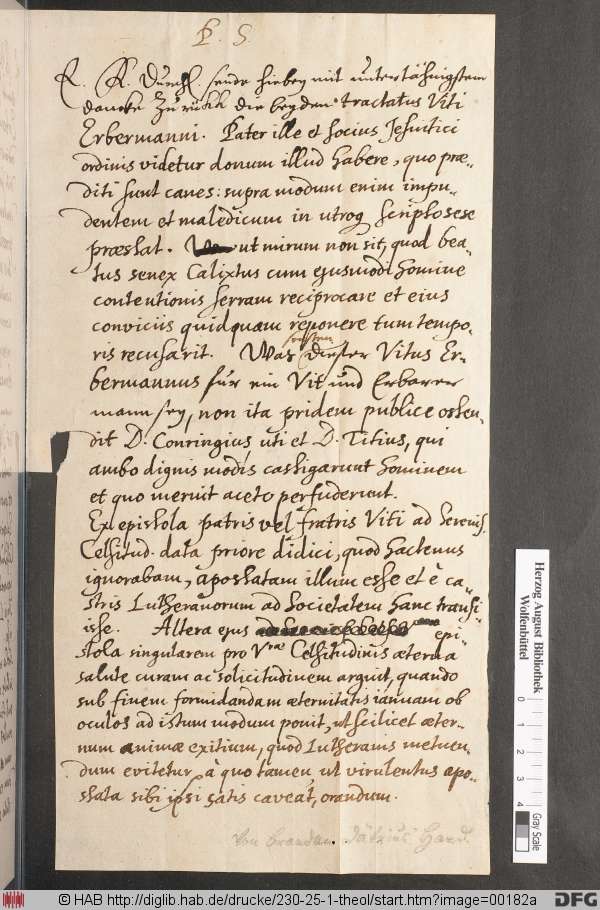 P. S.
E. F. Durchl. sende hiebey mit unterthänigstem
dancke zurükk die beyden tractatus Viti
Erbermanni. Pater ille et socius Jesuitici
ordinis videtur donum illud habere, quo præ-
diti sunt canes: supra modum enim impu-
dentem et maledicum in utroq scripto sese
præstat. ut mirum non sit, quod bea-
tus senex Calixtus cum ejusmodi homine
contentionis serram reciprocare et eius
conviciis quidquam reponere tum tempo-
ris recusarit. Was dieser Vitus Er-
bermannus für ein Vit und Erbarer
mann sey, non ita pridem publice osten-
dit D. Conringius uti et D. Titius, qui
ambo dignis modis castigarunt hominem
et quo meruit aceto perfuderunt.
Ex epistola patris vel fratris Viti ad Sereniss.
Celsitud. data priore didici, quod hactenus
ignorabam, apostatam illum esse et è ca-
stris Lutheranorum ad Societatem hanc transi-
isse. Altera ejus epi-
stola singularem pro Vræ Celsitudinis æterna
salute curam ac solicitudinem arguit, quando
sub finem formidandam æternitatis ianuam ob
oculos ad istum modum ponit, ut scilicet æter-
num animæ exitium, quod Lutheranis metuen-
dum evitetur, à quo tamen, ut virulentus apo-
stata sibi ipsi satis caveat, orandum.
Herzog August Bibliothek
Wolfenbüttel
0 1 2 3 4
Gray Scale
© HAB http://diglib.hab.de/drucke/230-25-1-theol/start.htm?image=00182a
DFG